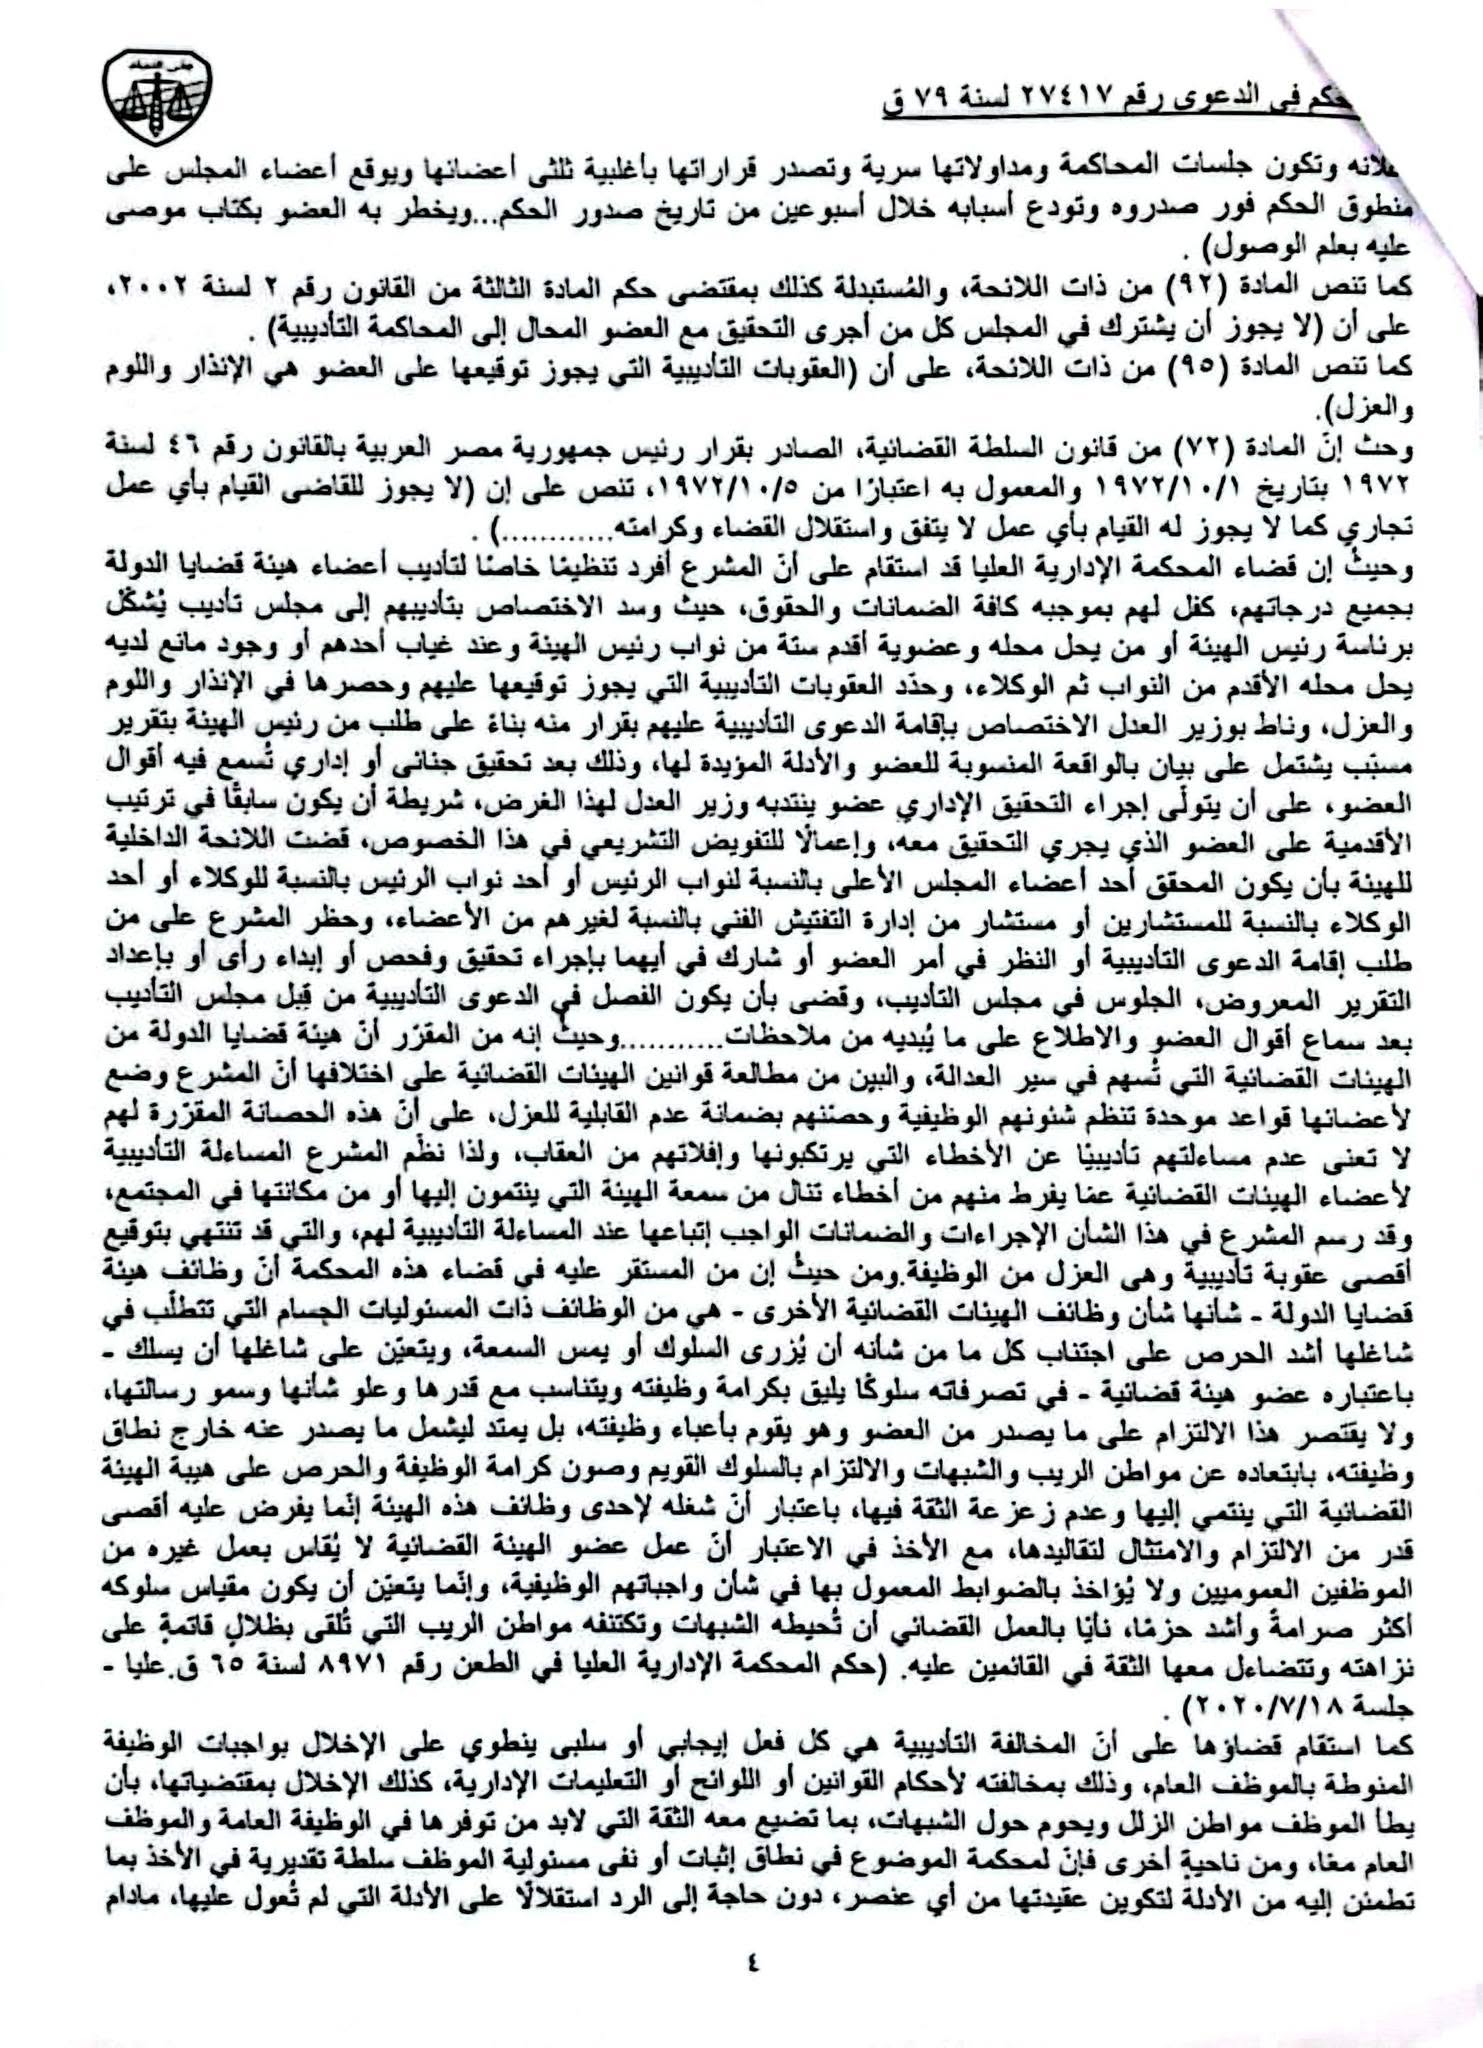 حكم في الدعوى رقم ٢٧٤١٧ لسنة ٧٩ ق
مجلس الدولة
علانه وتكون جلسات المحاكمة ومداولاتها سرية وتصدر قراراتها بأغلبية ثلثى أعضائها ويوقع أعضاء المجلس على
منطوق الحكم فور صدروه وتودع أسبابه خلال أسبوعين من تاريخ صدور الحكم...ويخطر به العضو بكتاب موصى
عليه بعلم الوصول) .
كما تنص المادة (٩٢) من ذات اللائحة، والمُستبدلة كذلك بمقتضى حكم المادة الثالثة من القانون رقم ٢ لسنة ٢٠٠٢،
على أن (لا يجوز أن يشترك في المجلس كل من أجرى التحقيق مع العضو المحال إلى المحاكمة التأديبية) .
كما تنص المادة (٩٥) من ذات اللائحة، على أن (العقوبات التأديبية التي يجوز توقيعها على العضو هي الإنذار واللوم
والعزل).
وحث إنّ المادة (٧٢) من قانون السلطة القضائية، الصادر بقرار رئيس جمهورية مصر العربية بالقانون رقم ٤٦ لسنة
١٩٧٢ بتاريخ ١٩٧٢/١٠/١ والمعمول به اعتبارًا من ١٩٧٢/١٠/٥، تنص على إن (لا يجوز للقاضى القيام بأي عمل
تجاري كما لا يجوز له القيام بأي عمل لا يتفق واستقلال القضاء وكرامته............) .
وحيثُ إن قضاء المحكمة الإدارية العليا قد استقام على أنّ المشرع أفرد تنظيمًا خاصًا لتأديب أعضاء هيئة قضايا الدولة
بجميع درجاتهم، كفل لهم بموجبه كافة الضمانات والحقوق، حيث وسد الاختصاص بتأديبهم إلى مجلس تأديب يُشكّل
برئاسة رئيس الهيئة أو من يحل محله وعضوية أقدم ستة من نواب رئيس الهيئة وعند غياب أحدهم أو وجود مانع لديه
يحل محله الأقدم من النواب ثم الوكلاء، وحدّد العقوبات التأديبية التي يجوز توقيعها عليهم وحصرها في الإنذار واللوم
والعزل، وناط بوزير العدل الاختصاص بإقامة الدعوى التأديبية عليهم بقرار منه بناءً على طلب من رئيس الهيئة بتقرير
مسبّب يشتمل على بيان بالواقعة المنسوبة للعضو والأدلة المؤيدة لها، وذلك بعد تحقيق جنائى أو إداري تُسمع فيه أقوال
العضو، على أن يتولّى إجراء التحقيق الإداري عضو ينتدبه وزير العدل لهذا الغرض، شريطة أن يكون سابقًا في ترتيب
الأقدمية على العضو الذي يجري التحقيق معه، وإعمالًا للتفويض التشريعي في هذا الخصوص، قضت اللائحة الداخلية
للهيئة بأن يكون المحقق أحد أعضاء المجلس الأعلى بالنسبة لنواب الرئيس أو أحد نواب الرئيس بالنسبة للوكلاء أو أحد
الوكلاء بالنسبة للمستشارين أو مستشار من إدارة التفتيش الفني بالنسبة لغيرهم من الأعضاء، وحظر المشرع على من
طلب إقامة الدعوى التأديبية أو النظر في أمر العضو أو شارك في أيهما بإجراء تحقيق وفحص أو إبداء رأى أو بإعداد
التقرير المعروض، الجلوس في مجلس التأديب، وقضى بأن يكون الفصل في الدعوى التأديبية من قِبل مجلس التأديب
بعد سماع أقوال العضو والاطلاع على ما يُبديه من ملاحظات...........وحيثُ إنه من المقرّر أنّ هيئة قضايا الدولة من
الهيئات القضائية التي تُسهم في سير العدالة، والبين من مطالعة قوانين الهيئات القضائية على اختلافها أنّ المشرع وضع
لأعضائها قواعد موحدة تنظم شئونهم الوظيفية وحصّنهم بضمانة عدم القابلية للعزل، على أنّ هذه الحصانة المقرّرة لهم
لا تعنى عدم مساءلتهم تأديبيًا عن الأخطاء التي يرتكبونها وإفلاتهم من العقاب، ولذا نظّم المشرع المساءلة التأديبية
لأعضاء الهيئات القضائية عمّا يفرط منهم من أخطاء تنال من سمعة الهيئة التي ينتمون إليها أو من مكانتها في المجتمع،
وقد رسم المشرع في هذا الشأن الإجراءات والضمانات الواجب إتباعها عند المساءلة التأديبية لهم، والتي قد تنتهي بتوقيع
أقصى عقوبة تأديبية وهى العزل من الوظيفة.ومن حيثُ إن من المستقر عليه في قضاء هذه المحكمة أنّ وظائف هيئة
قضايا الدولة - شأنها شأن وظائف الهيئات القضائية الأخرى - هي من الوظائف ذات المسئوليات الجسام التي تتطلّب في
شاغلها أشد الحرص على اجتناب كل ما من شأنه أن يُزرى السلوك أو يمس السمعة، ويتعيّن على شاغلها أن يسلك -
باعتباره عضو هيئة قضائية - في تصرفاته سلوكًا يليق بكرامة وظيفته ويتناسب مع قدرها وعلو شأنها وسمو رسالتها،
ولا يقتصر هذا الالتزام على ما يصدر من العضو وهو يقوم بأعباء وظيفته، بل يمتد ليشمل ما يصدر عنه خارج نطاق
وظيفته، بابتعاده عن مواطن الريب والشبهات والالتزام بالسلوك القويم وصون كرامة الوظيفة والحرص على هيبة الهيئة
القضائية التي ينتمي إليها وعدم زعزعة الثقة فيها، باعتبار أنّ شغله لإحدى وظائف هذه الهيئة إنّما يفرض عليه أقصى
قدر من الالتزام والامتثال لتقاليدها، مع الأخذ في الاعتبار أنّ عمل عضو الهيئة القضائية لا يُقاس بعمل غيره من
الموظفين العموميين ولا يُؤاخذ بالضوابط المعمول بها في شأن واجباتهم الوظيفية، وإنّما يتعيّن أن يكون مقياس سلوكه
أكثر صرامةً وأشد حزمًا، نأيًا بالعمل القضائي أن تُحيطه الشبهات وتكتنفه مواطن الريب التي تُلقى بظلالٍ قاتمةٍ على
نزاهته وتتضاءل معها الثقة في القائمين عليه. (حكم المحكمة الإدارية العليا في الطعن رقم ٨٩٧١ لسنة ٦٥ ق.عليا -
جلسة ٢٠٢٠/٧/١٨) .
كما استقام قضاؤها على أنّ المخالفة التأديبية هي كل فعل إيجابي أو سلبى ينطوي على الإخلال بواجبات الوظيفة
المنوطة بالموظف العام، وذلك بمخالفته لأحكام القوانين أو اللوائح أو التعليمات الإدارية، كذلك الإخلال بمقتضياتها، بأن
يطأ الموظف مواطن الزلل ويحوم حول الشبهات، بما تضيع معه الثقة التي لابد من توفرها في الوظيفة العامة والموظف
العام معًا، ومن ناحيةٍ أخرى فإنّ لمحكمة الموضوع في نطاق إثبات أو نفى مسئولية الموظف سلطة تقديرية في الأخذ بما
تطمئن إليه من الأدلة لتكوين عقيدتها من أي عنصر، دون حاجة إلى الرد استقلالًا على الأدلة التي لم تُعول عليها، مادام
٤